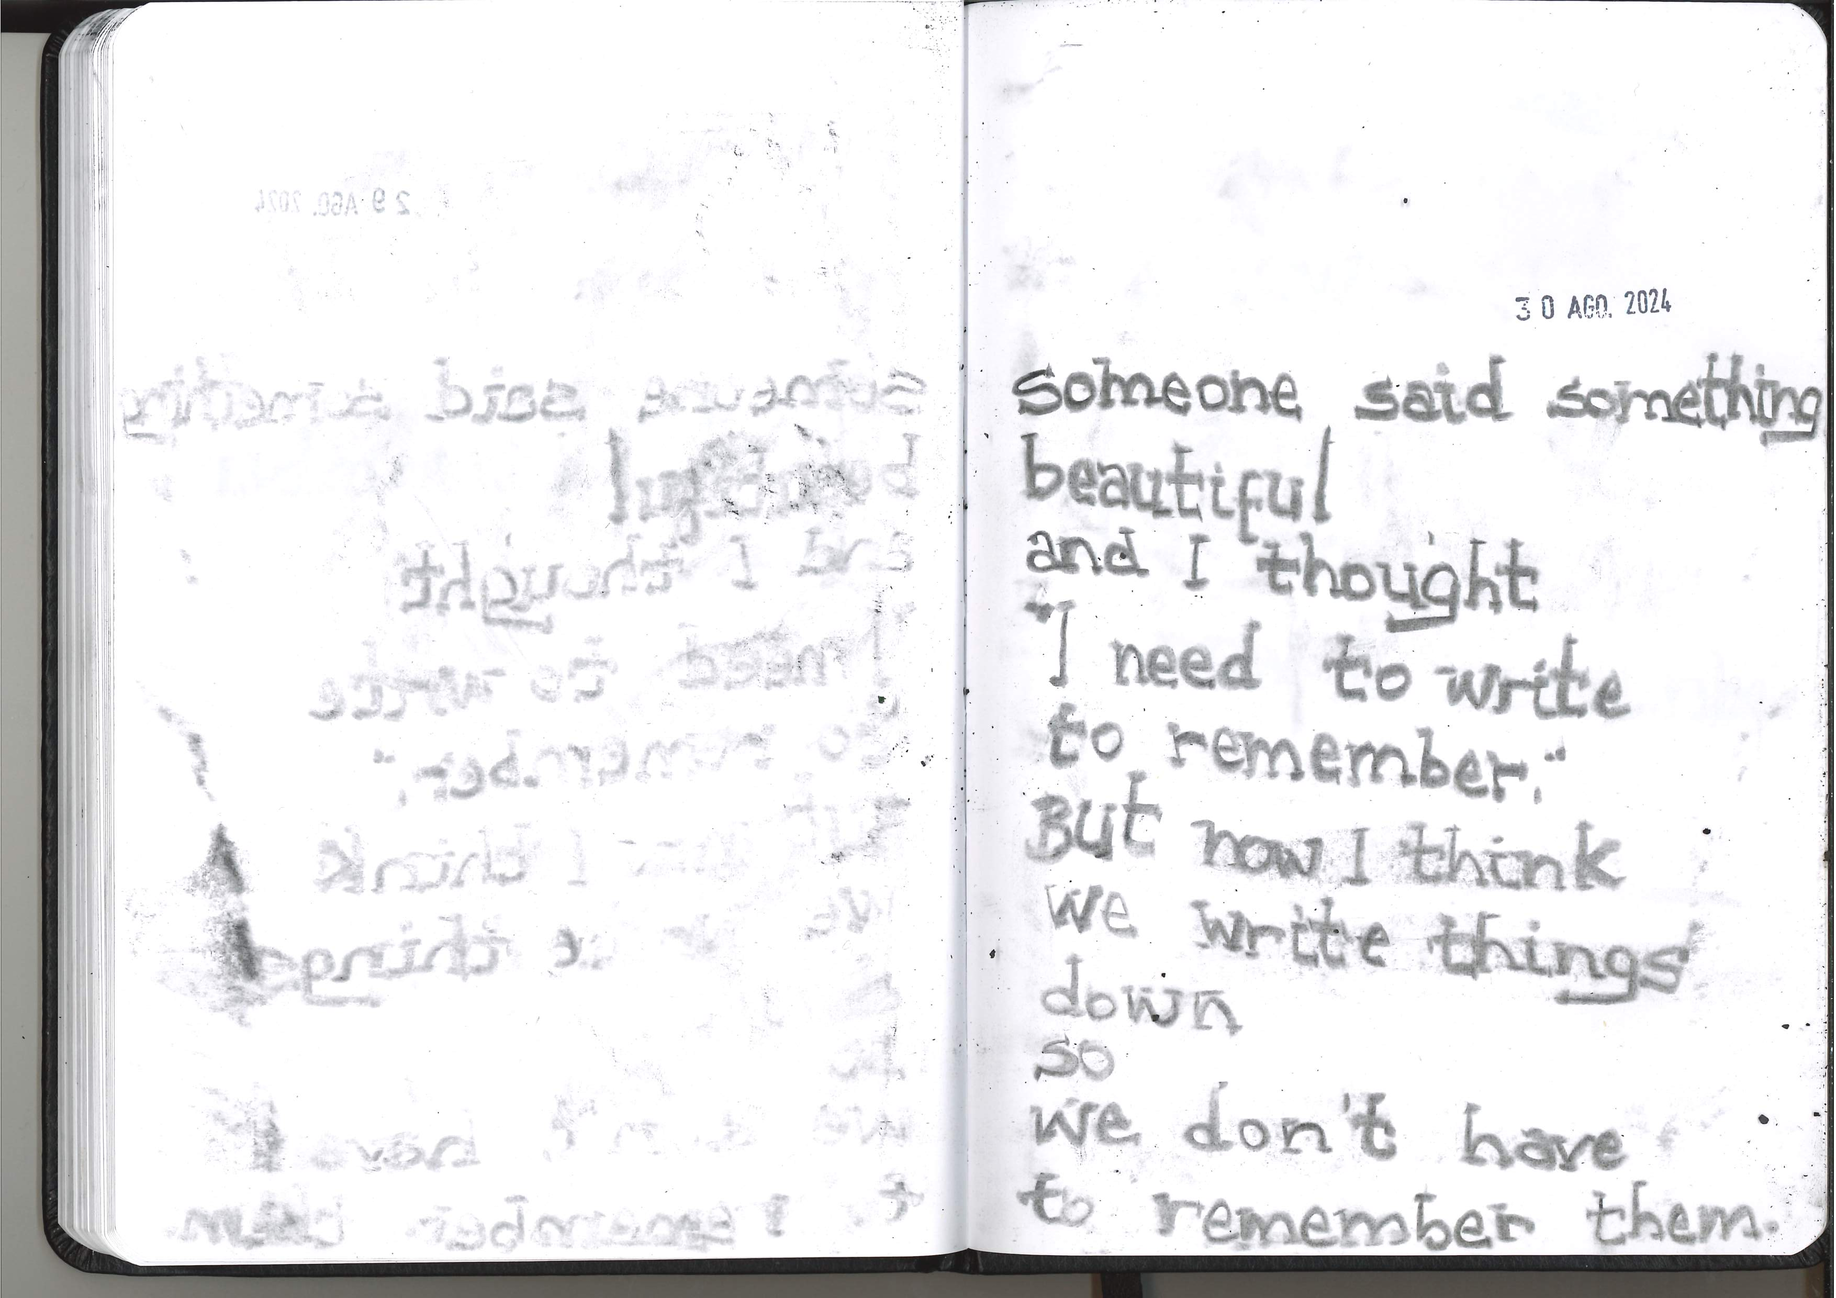 29 AGO. 2024
30 AGO. 2024
someone said something
beautiful
and I thought
"I need to write
to remember."
But now I think
we write things
down
so
we don't have
to remember them.